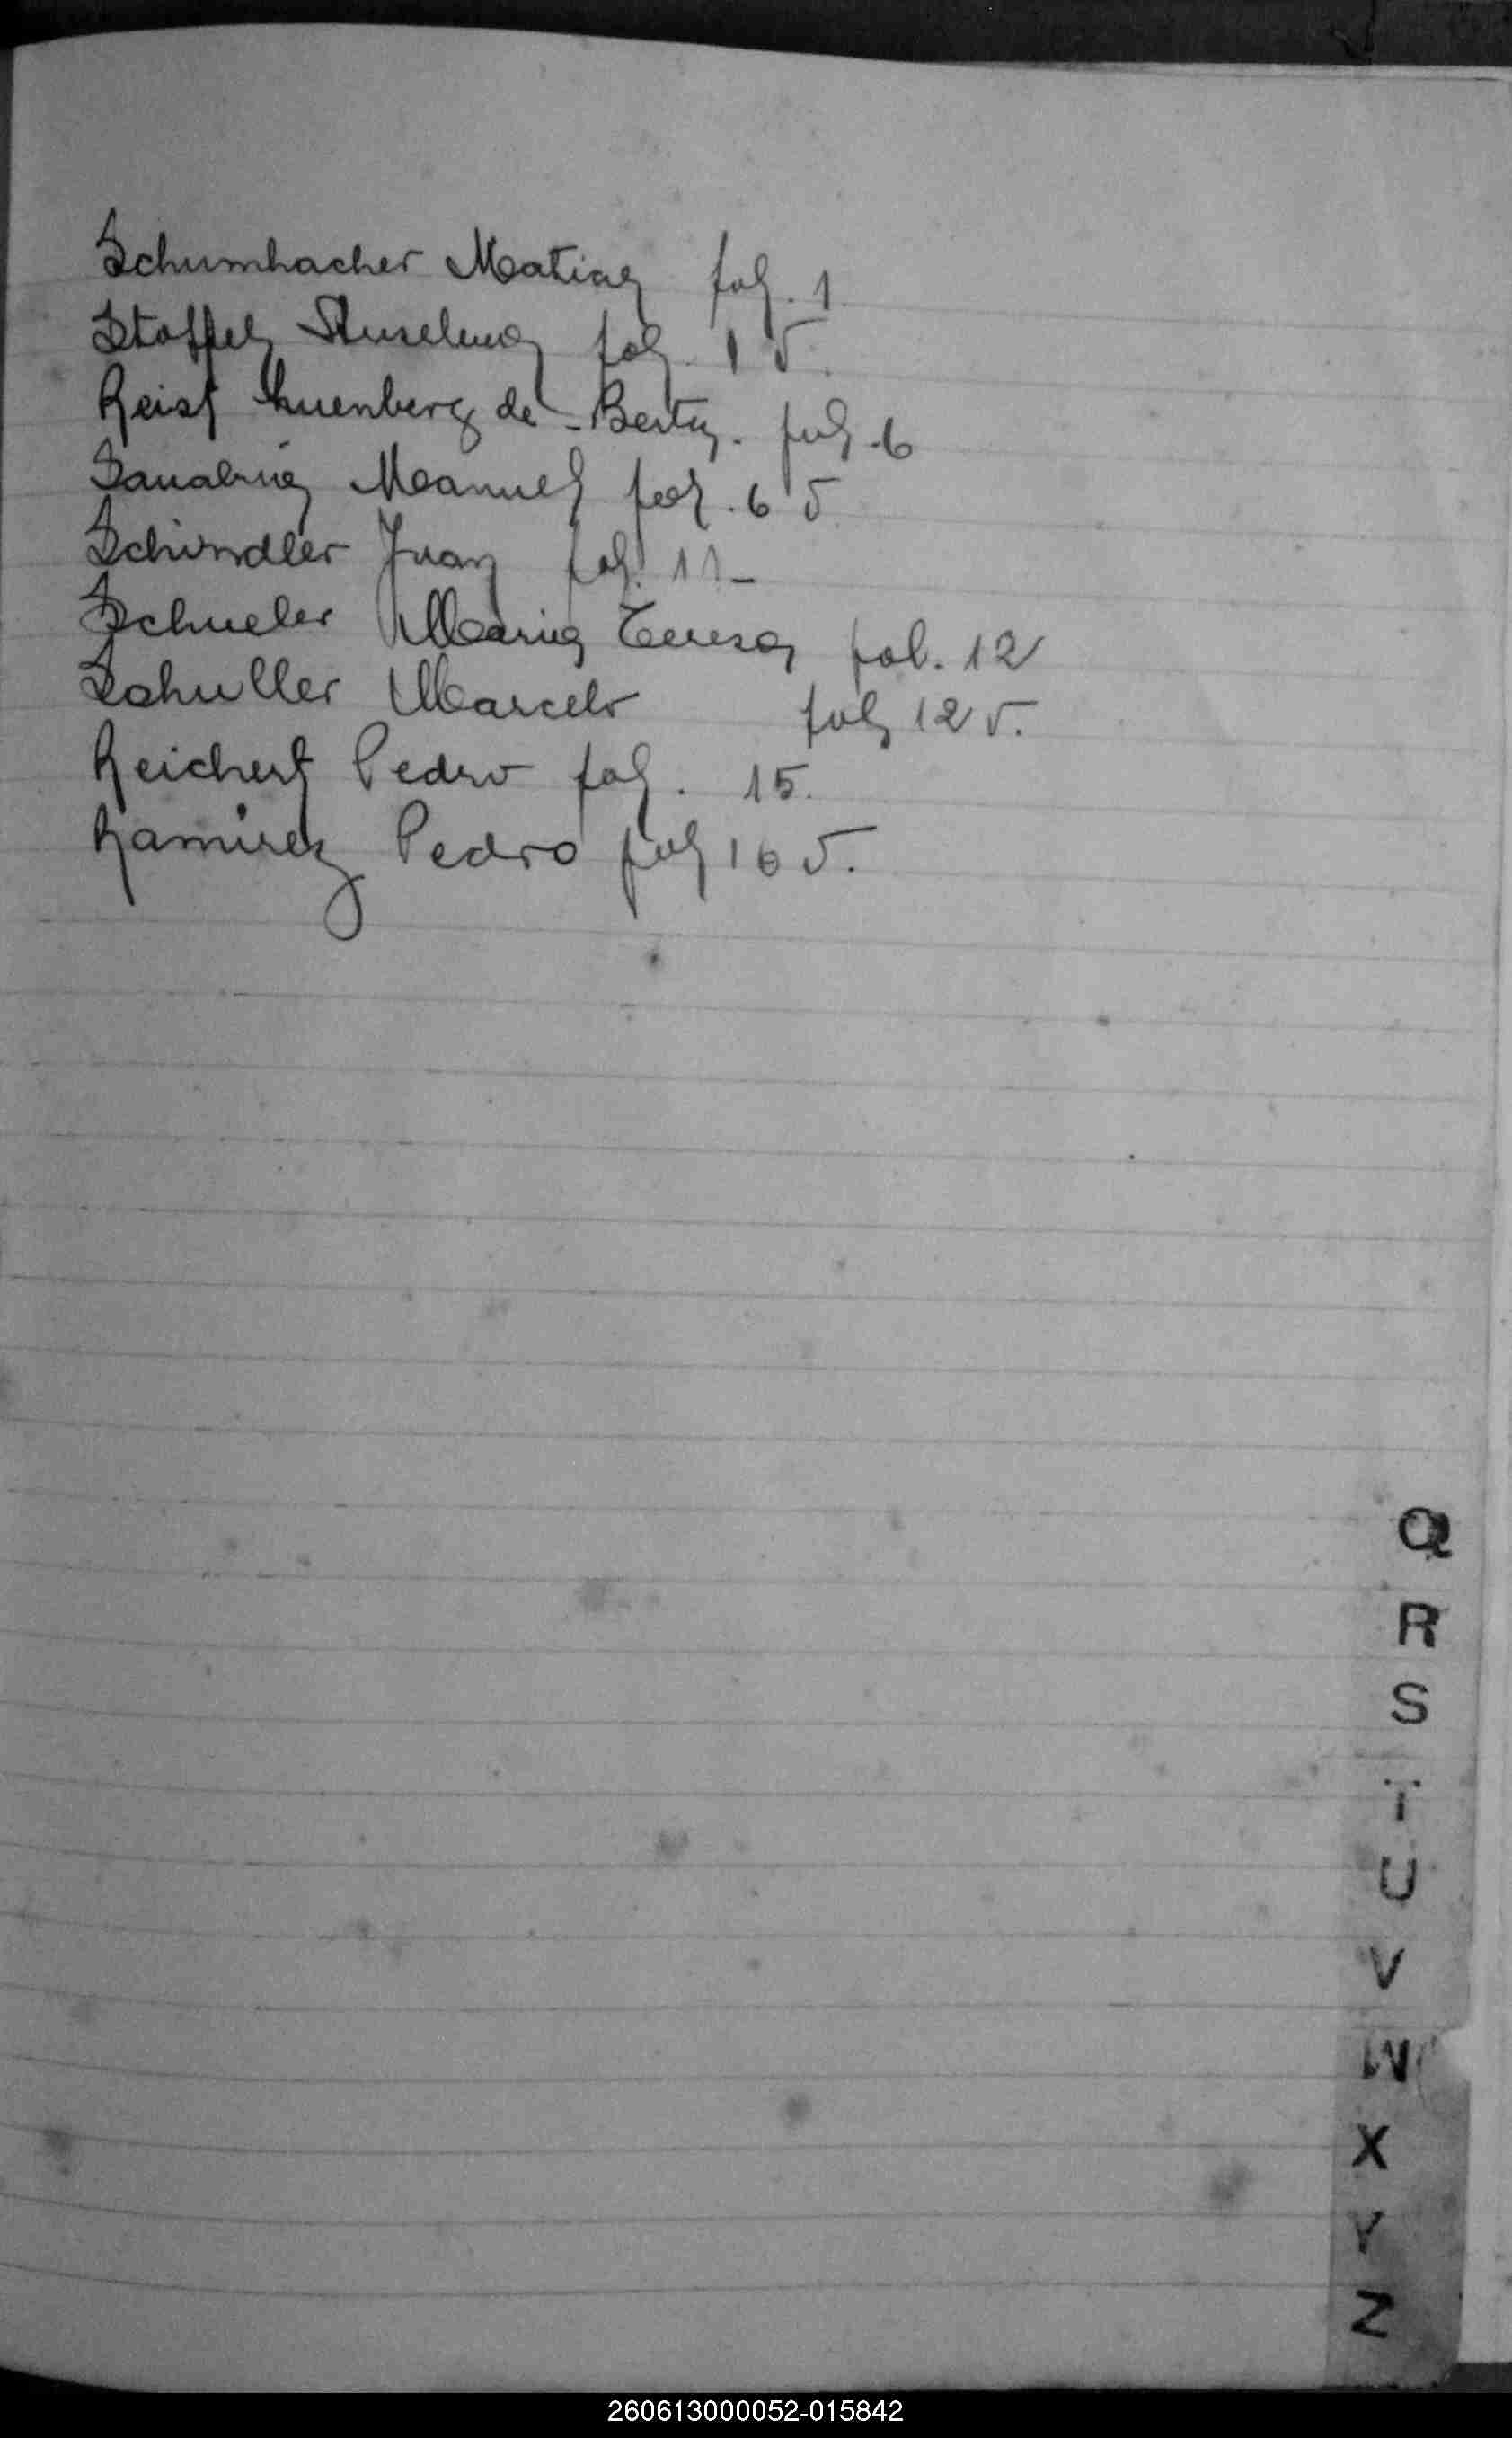 Schumhacher Matias fol. 1
Stoffel Anselmo fol. 1 v.
Reist de Berta. fol. 6
Sanabria Manuel fol. 6 v
Schindler Juan fol. 11-
Schueler Maria Teresa fol. 12
Schuller Marcelo fol 12 v.
Reichert Pedro fol. 15.
Ramirez Pedro fol 16 v.
Q
R
S
T
U
V
W
X
Y
Z
260613000052-015842